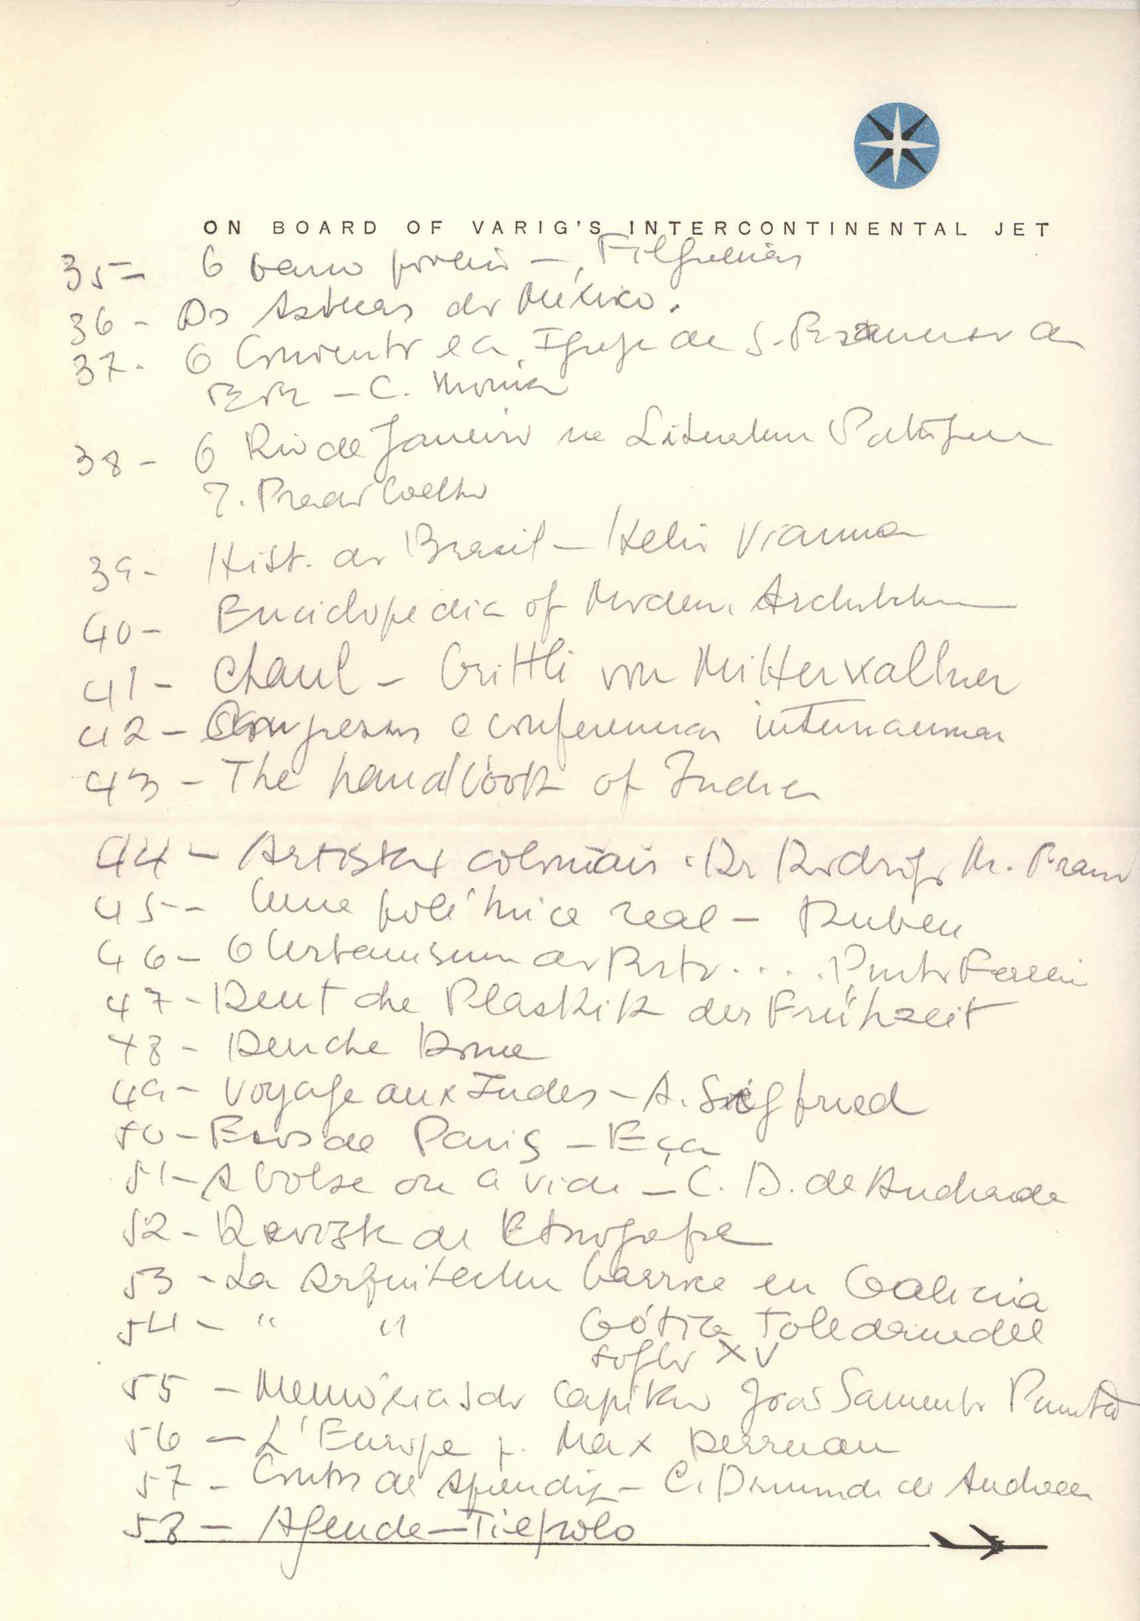 ON BOARD OF VARIG'S INTERCONTINENTAL JET
35- O barro - Filgueiras
36- Os Aztecas do México.
37. O Convento e a Igreja de S. da
- C.
38- O Rio de Janeiro na Literatura Portuguesa
J. Prado Coelho
39- Hist. do Brasil - Helio Vianna
40- Enciclopedia of Modern Architecture
41- Chaul - Gritli von Mitterwallner
42- Congressos e conferencias internacionais
43- The handbook of India
44- Artistas coloniais . Dr Rodrigo M. Franco
45- Uma política real - Ruben
46- O Urbanismo do Porto....
47- Deutche Plastik der Frühzeit
48- Deuche Dome
49- Voyage aux Indes - A. Siegfried
50- Ecos de Paris - Eça
51- A bolsa ou a vida - C. D. de Andrade
52- Revista de Etnografia
53- La Arquitectura barroca en Galicia
54- " " Gótica Toledana del
siglo XV
55- Memórias do Capitão João Sarmento Pimentel
56- L'Europe p. Max Derruau
57- Contos de Aprendiz - C. Drumond de Andrade
58- Agenda - Tiepolo